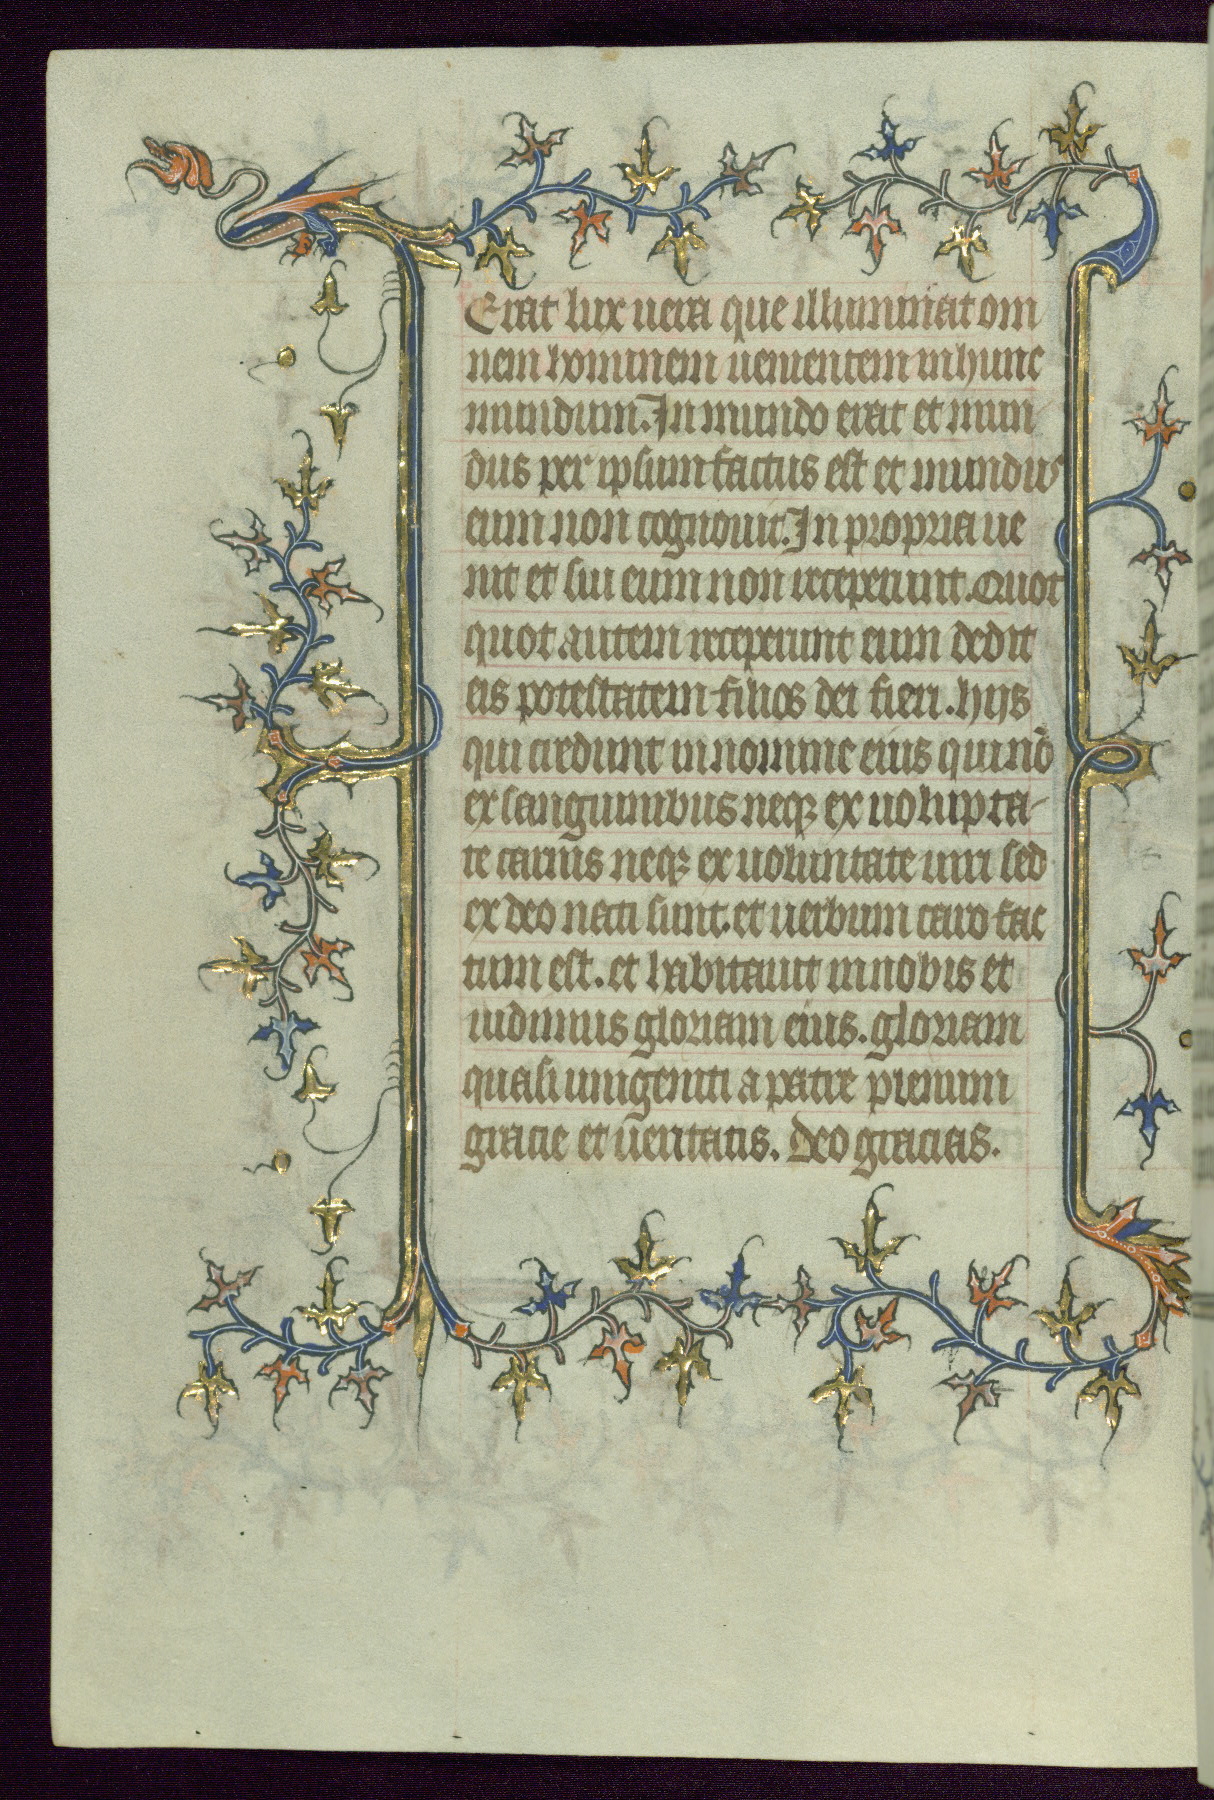 Erat lux uera que illuminat om
nem hominem uenientem in hunc
mundum. In mundo erat et mun
dus per ipsum factus est et mundus
eum non cognouit. In propria ue
nit et sui eum non receperunt. Quot
quot autem receperunt eum dedit
eis potestatem filios dei fieri. hijs
qui credunt in nomine eius qui nō
ex sanguinibus neqꝫ ex uolupta-
te carnis neqꝫ ex uoluntate uiri sed
ex deo nati sunt. et uerbum caro fac
tum est. et habitauit in nobis et
uidimus gloriam eius. gloriam
quasi unigeniti a patre plenum
gracie et ueritatis. Deo gracias.